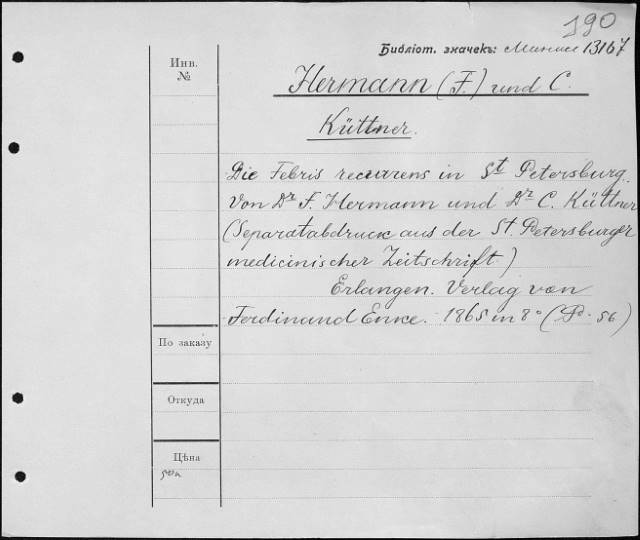 190
Библіот. значекъ: 13167
Инв.
№
Hermann (F.) und C.
Küttner.
Die Febris recurrens in St Petersburg.
Von Dr F. Hermann und Dr C. Küttner
(Separatabdruck aus der St. Petersburger
medicinischer Zeitschrift.)
Erlangen. Verlag von
Ferdinand Enke. 1865 in 8° ( 56)
По заказу
Откуда
Цѣна